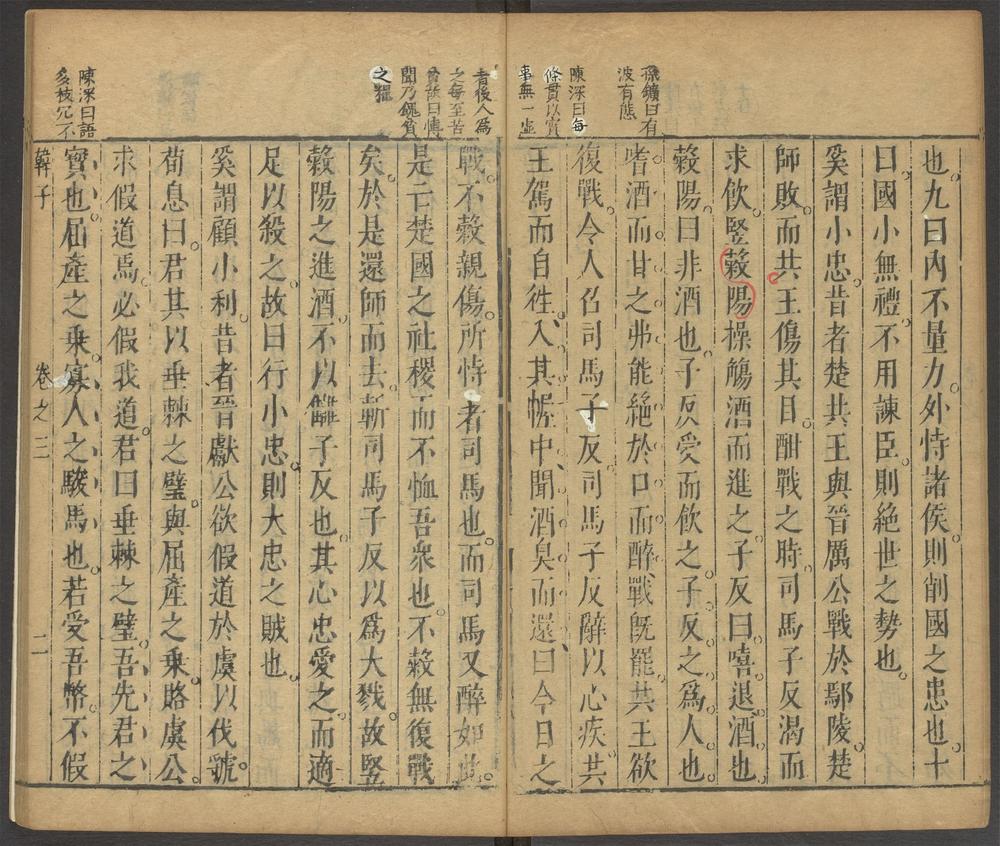 孫鑛曰有
波有態
陳深曰每
條貫以實
事無一虛
也九曰內不量力外恃諸侯則削國之患也十
曰國小無禮不用諫臣則絕世之勢也
奚謂小忠昔者楚共王與晉厲公戰於鄢陵楚
師敗而共王傷其目酣戰之時司馬子反渴而
求飲豎穀陽操觴酒而進之子反曰嘻退酒也
穀陽曰非酒也子反受而飲之子反之爲人也
嗜酒而甘之弗能絕於口而醉戰旣罷共王欲
復戰令人召司馬子反司馬子反辭以心疾共
王駕而自往入其幄中聞酒臭而還曰今日之
者後人爲
之每至苦
聞乃餽貧
之糧
戰不穀親傷所恃者司馬也而司馬又醉如此
是亡楚國之社稷而不恤吾衆也不穀無復戰
矣於是還師而去斬司馬子反以爲大戮故豎
穀陽之進酒不以讎子反也其心忠愛之而適
足以殺之故曰行小忠則大忠之賊也
奚謂顧小利昔者晉獻公欲假道於虞以伐虢
荀息曰君其以垂棘之璧與屈產之乘賂虞公
求假道焉必假我道君曰垂棘之璧吾先君之
陳深曰語
多枝冗不
寶也屈產之乘寡人之駿馬也若受吾幣不假
韓子 卷之三 二